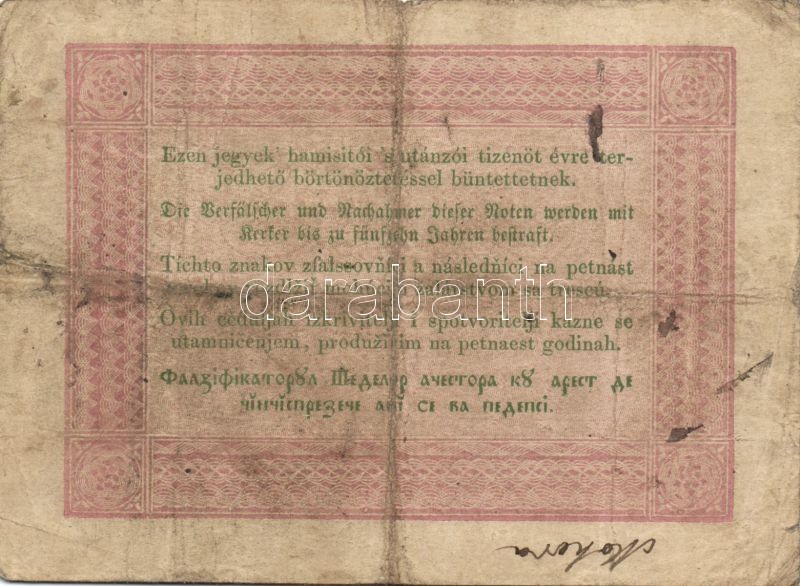 Ezen jegyek' hamisitói 's utánzói tizenöt évre ter-
jedhető börtönöztetéssel büntettetnek.
Die Verfälscher und Nachahmer dieser Noten werden mit
Kerker bis zu fünfzehn Jahren bestraft.
Tíchto znakov zfalšovňíci a následňíci na petnást
žalárstvom sa trescú.
darabanth
Ovih cedúljah izkrivitelji i spotvoritelji kazne se
utamničenjem, produživim na petnaest godinah.
Фалзіфікаторꙋл Шеделор ачестора кꙋ арест де
чінчіспрезече ані се ва педепсі.